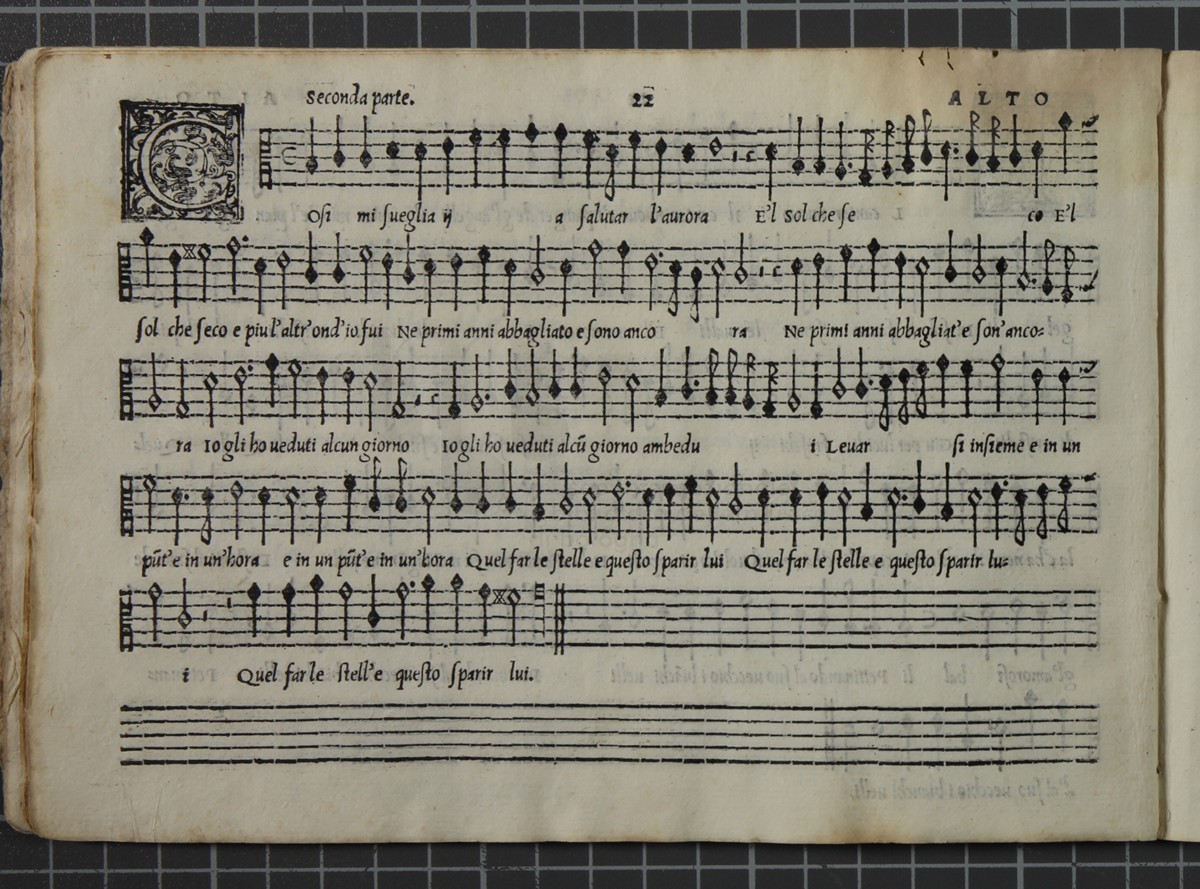 Seconda parte. 22 ALTO
COsi mi sueglia ij a salutar l'aurora E'l Sol che se co E'l
sol che seco e piu l'altr'ond'io fui Ne primi anni abbagliato e sono anco ra Ne primi anni abbagliat'e son'anco=
ra Io gli ho ueduti alcun giorno Io gli ho ueduti alcū giorno ambedu i Leuar si insieme e in un
pūt'e in un'hora e in un pūt'e in un'hora Quel far le stelle e questo sparir lui Quel far le stelle e questo sparir lu=
i Quel far le stell'e questo sparir lui.